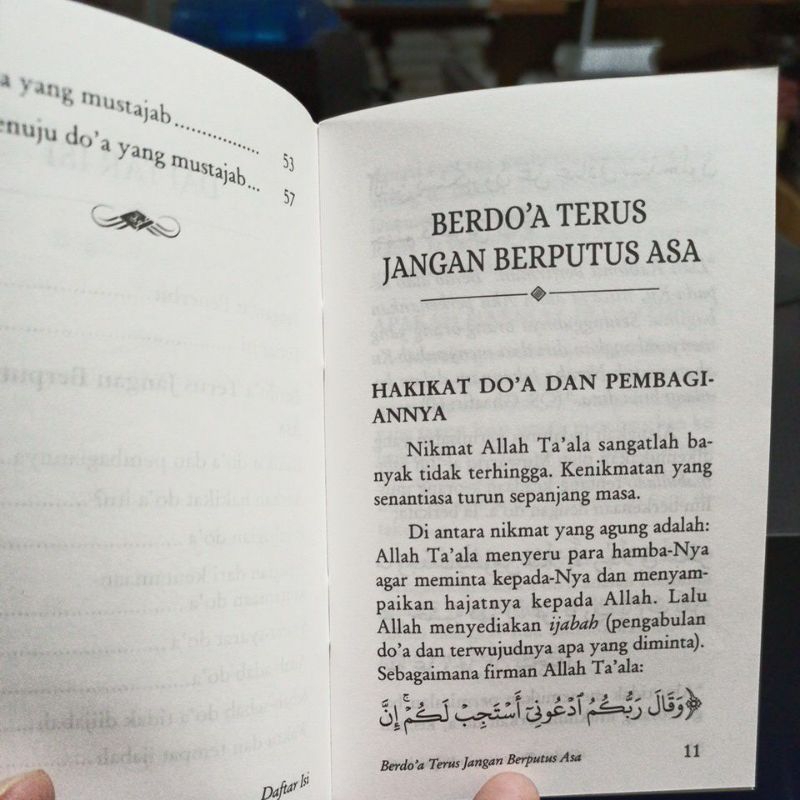 a yang mustajab............... 53
enuju do'a yang mustajab... 57
Daftar Isi
BERDO'A TERUS
JANGAN BERPUTUS ASA
HAKIKAT DO'A DAN PEMBAGI-
ANNYA
Nikmat Allah Ta'ala sangatlah ba-
nyak tidak terhingga. Kenikmatan yang
senantiasa turun sepanjang masa.
Di antara nikmat yang agung adalah:
Allah Ta'ala menyeru para hamba-Nya
agar meminta kepada-Nya dan menyam-
paikan hajatnya kepada Allah. Lalu
Allah menyediakan ijabah (pengabulan
do'a dan terwujudnya apa yang diminta).
Sebagaimana firman Allah Ta'ala:
﴿وَقَالَ رَبُّكُمُ ٱدْعُونِيٓ أَسْتَجِبْ لَكُمْۚ إِنَّ
Berdo'a Terus Jangan Berputus Asa 11